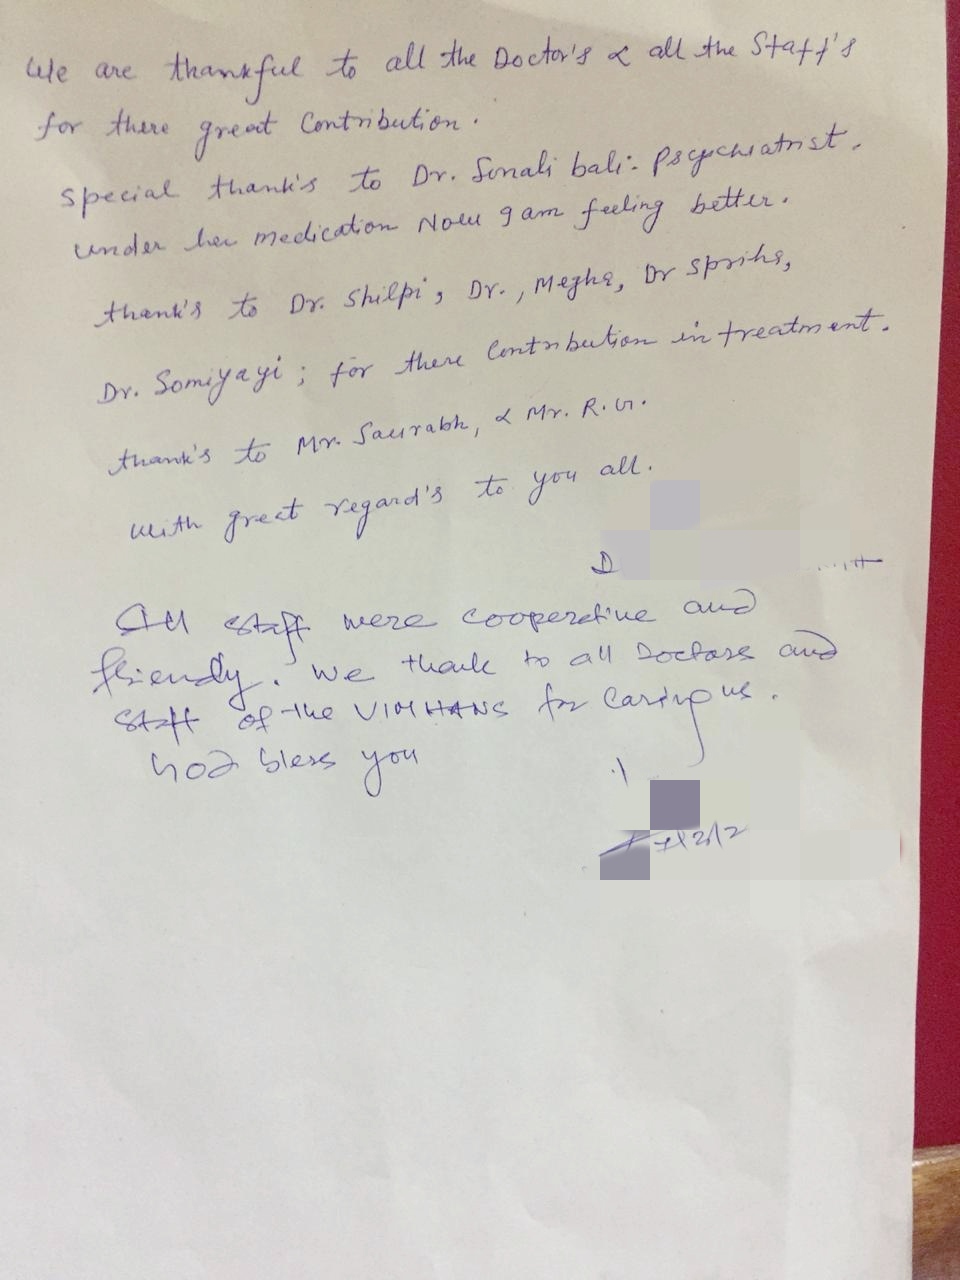 We are thankful to all the Doctor's & all the Staff's
for there great Contribution.
special thank's to Dr. Sonali bali- Psychiatrist.
under her medication Now I am feeling better.
thank's to Dr. Shilpi, Dr., Megha, Dr Spriha,
Dr. Somiyayi; for there Contribution in treatment.
thank's to Mr. Saurabh, & Mr. R.G.
with great regard's to you all.
D
All staff were cooperative and
friendly. We thank to all Doctors and
staff of the VIMHANS for Caring us.
God bless you